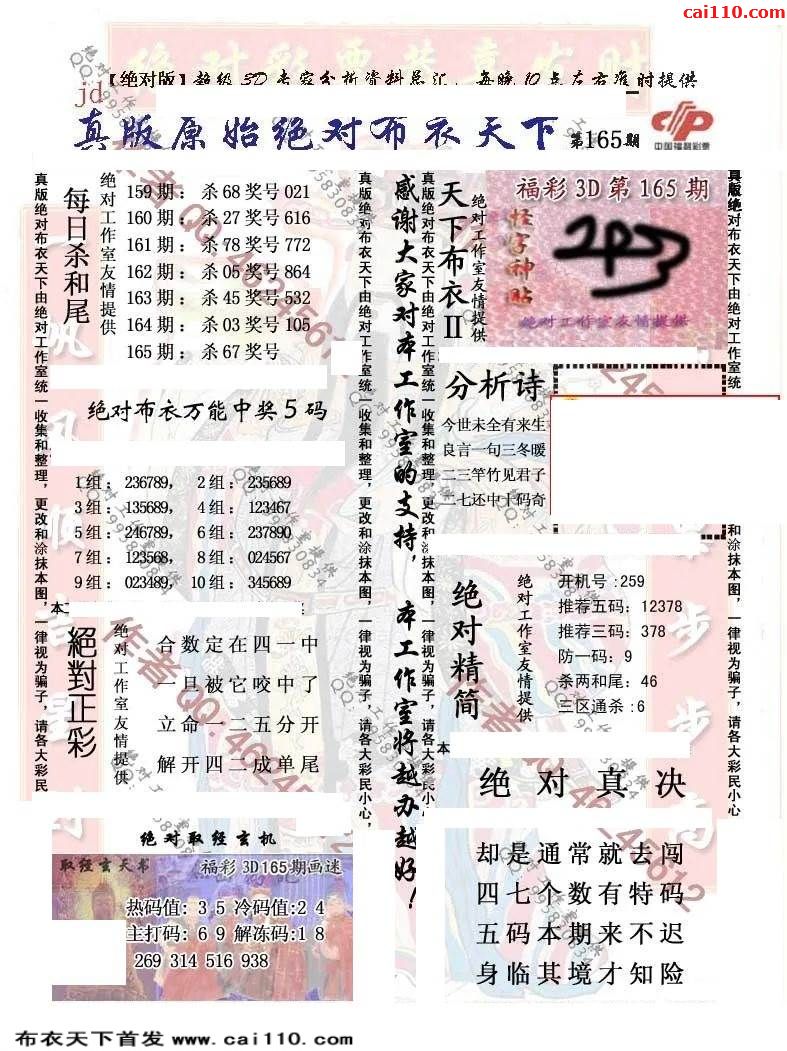 cai110.com
【绝对版】超级3D专家分析资料总汇,每晚10点左右准时提供
jd
真版原始绝对布衣天下 第165期
中国福利彩票
真版绝对布衣天下由绝对工作室统一收集和整理,更改和涂抹本图,一律视为骗子,请各大彩民小心,
每日杀和尾
绝对工作室友情提供
159期:杀68奖号021
160期:杀27奖号616
161期:杀78奖号772
162期:杀05奖号864
163期:杀45奖号532
164期:杀03奖号105
165期:杀67奖号
绝对布衣万能中奖5码
1组:236789, 2组:235689
3组:135689, 4组:123467
5组:246789, 6组:237890
7组:123568, 8组:024567
9组:023489, 10组:345689
本
絕對正彩
绝对工作室友情提供
合数定在四一中
一旦被它咬中了
立命一二五分开
解开四二成单尾
绝对取经玄机
取经玄天书 福彩3D165期画迷
热码值:35冷码值:24
主打码:69解冻码:18
269 314 516 938
真版绝对布衣天下由绝对工作室统一收集和整理,更改和涂抹本图,一律视为骗子,请各大彩民小心,
感谢大家对本工作室的支持,本工作室将越办越好!
真版绝对布衣天下由绝对工作室统一收集和整理,更改和涂抹本图,一律视为骗子,请各大彩民小心,
天下布衣II
绝对工作室友情提供
福彩3D第165期
怪字神贴
绝对工作室友情提供
分析诗
今世未全有来生
良言一句三冬暖
二三竿竹见君子
二七还中十码奇
绝对精简
绝对工作室友情提供
开机号:259
推荐五码:12378
推荐三码:378
防一码:9
杀两和尾:46
三区通杀:6
本
绝对真决
却是通常就去闯
四七个数有特码
五码本期来不迟
身临其境才知险
真版绝对布衣天下由绝对工作室统一
和涂抹本图,一律视为骗子,请各大彩民小心
布衣天下首发 www.cai110.com